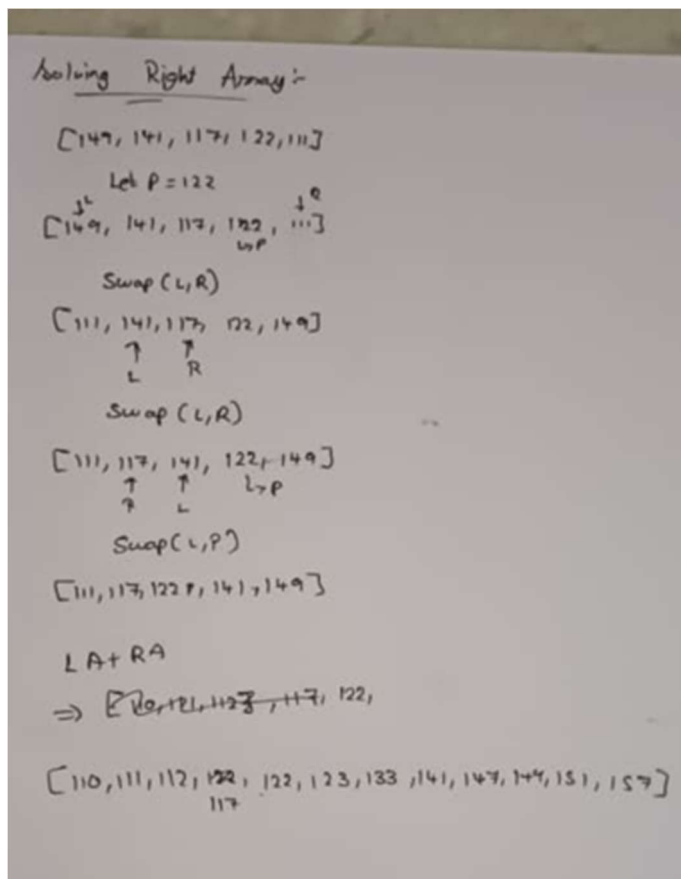 Solving Right Array:-
[149, 141, 117, 122, 111]
Let P = 122
↓L ↓R
[149, 141, 117, 122, 111]
↳P
Swap (L,R)
[111, 141, 117, 122, 149]
↑ ↑
L R
Swap (L,R)
[111, 117, 141, 122, 149]
↑ ↑ ↳P
R L
Swap (L,P)
[111, 117, 122, 141, 149]
LA + RA
⇒ 117, 122,
[110, 111, 112, 122, 122, 123, 133, 141, 147, 149, 151, 157]
117